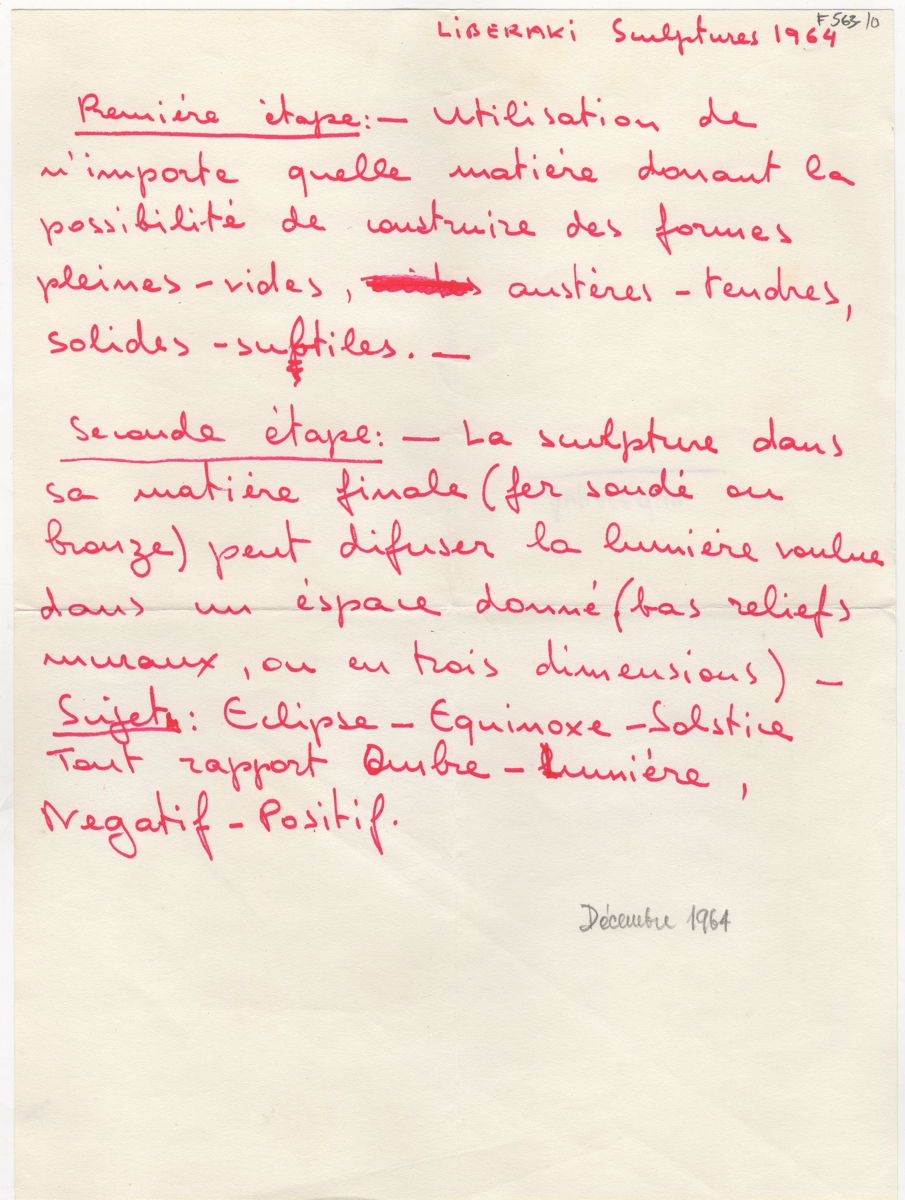 F 563/0
LiBERAKi Sculptures 1964
Première ètape:— Utilisation de
n'importe quelle matière donant la
possibilité de construire des formes
pleines-vides, austères-tendres,
solides-subtiles. —
Seconde ètape: — La sculpture dans
sa matière finale (fer soudé ou
bronze) peut difuser la lumière voulue
dans un éspace donné (bas reliefs
muraux, ou en trois dimensions) —
Sujet: Eclipse - Equinoxe - Solstice
Tout rapport Ombre - Lumière,
Negatif - Positif.
Décembre 1964